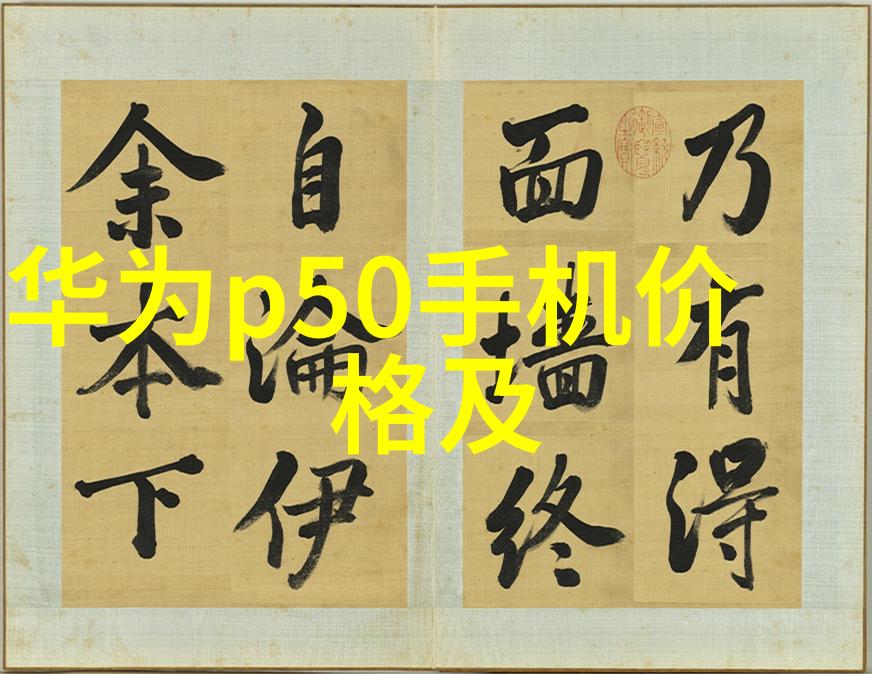 华为p50手机价
格及
乃有得
面墻終
自淪伊
余本下